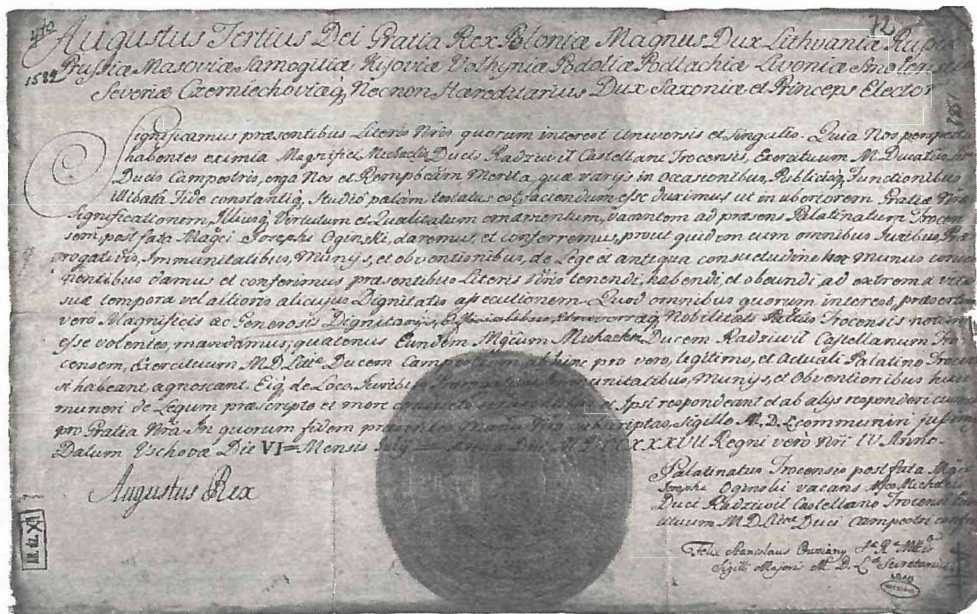 Augustus Tertius Dei Gratia Rex Poloniæ Magnus Dux Lithvaniæ Rußiæ
Prußiæ Masoviæ Samogitiæ Kijoviæ Volhyniæ Podoliæ Podlachiæ Livoniæ Smolensciæ
Severiæ Czerniechoviæq, Necnon Hæreditarius Dux Saxoniæ et Princeps Elector
Significamus præsentibus Literis Nris quorum interest Universis et Singulis. Quia Nos perspecta
habentes eximia Magnifici Michaelis Ducis Radziwil Castellani Trocensis, Exercituum M. Ducatus
Ducis Campestris, erga Nos et Rempbcam Merita, quæ varijs in Occasionibus, Publicisq, Functionibus
illibata Fide constantiq, Studio palam testatus est, faciendum esse duximus ut in uberiorem Gratiæ Nræ
Significationem, Illiusq, Virtutum et Qualitatum ornamentum, vacantem ad præsens Palatinatum Trocen
sem, post fata Magci Josephi Oginski, daremus, et conferremus, prout quidem cum omnibus Juribus, Præ
rogativis, Immunitatibus, Munijs, et obventionibus, de Lege et antiqua consuetudine hoc munus
damus et conferimus præsentibus Literis Nris tenendi, habendi, et obeundi ad extrema vitæ
suæ tempora vel altioris alicujus Dignitatis assecutionem. Quod omnibus quorum interest, præsertim
vero Magnificis ac Generosis Dignitarijs, Officialibus, Nobilitati Palatus Trocensis notum
esse volentes, mandamus, quatenus Eundem Mgcum Michaelem Ducem Radziwil Castellanum Tro
censem, Exercituum M.D. Litt. Ducem pro vero, legitimo, et actuali Palatino Trocen
si habeant agnoscant. Eiq, de Loco, Juribus Immunitatibus, Munijs, et Obventionibus huic
muneri de Legum præscripto et more Ipsi respondeant et ab alijs responderi curent
pro Gratia Nra. In quorum fidem præsentes Manu subscriptas, Sigillo M.D.L. communiri jussimus
Datum Vschovæ Die VI Mensis Julij XXXVII Regni vero Nri IV Anno.
Augustus Rex
Palatinatus Trocensis post fata Mgci
Josephi Oginski vacans Mgco Michaeli
Duci Radziwil Castellano Trocensi
M.D. Duci Campestri
Felix Stanislaus
Sigilli Majoris M. D. L. Secretarius
72
AGAD